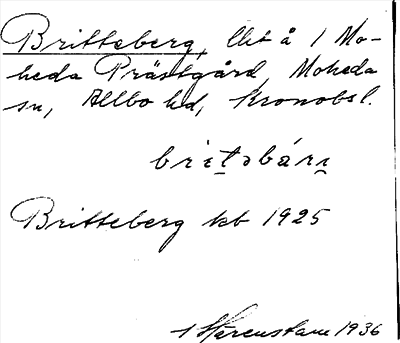 Britteberg, lht å 1 Mo-
heda Prästgård, Moheda
sn, Allbo hd, Kronobsl.
britəbárı
Britteberg kb 1925
1936